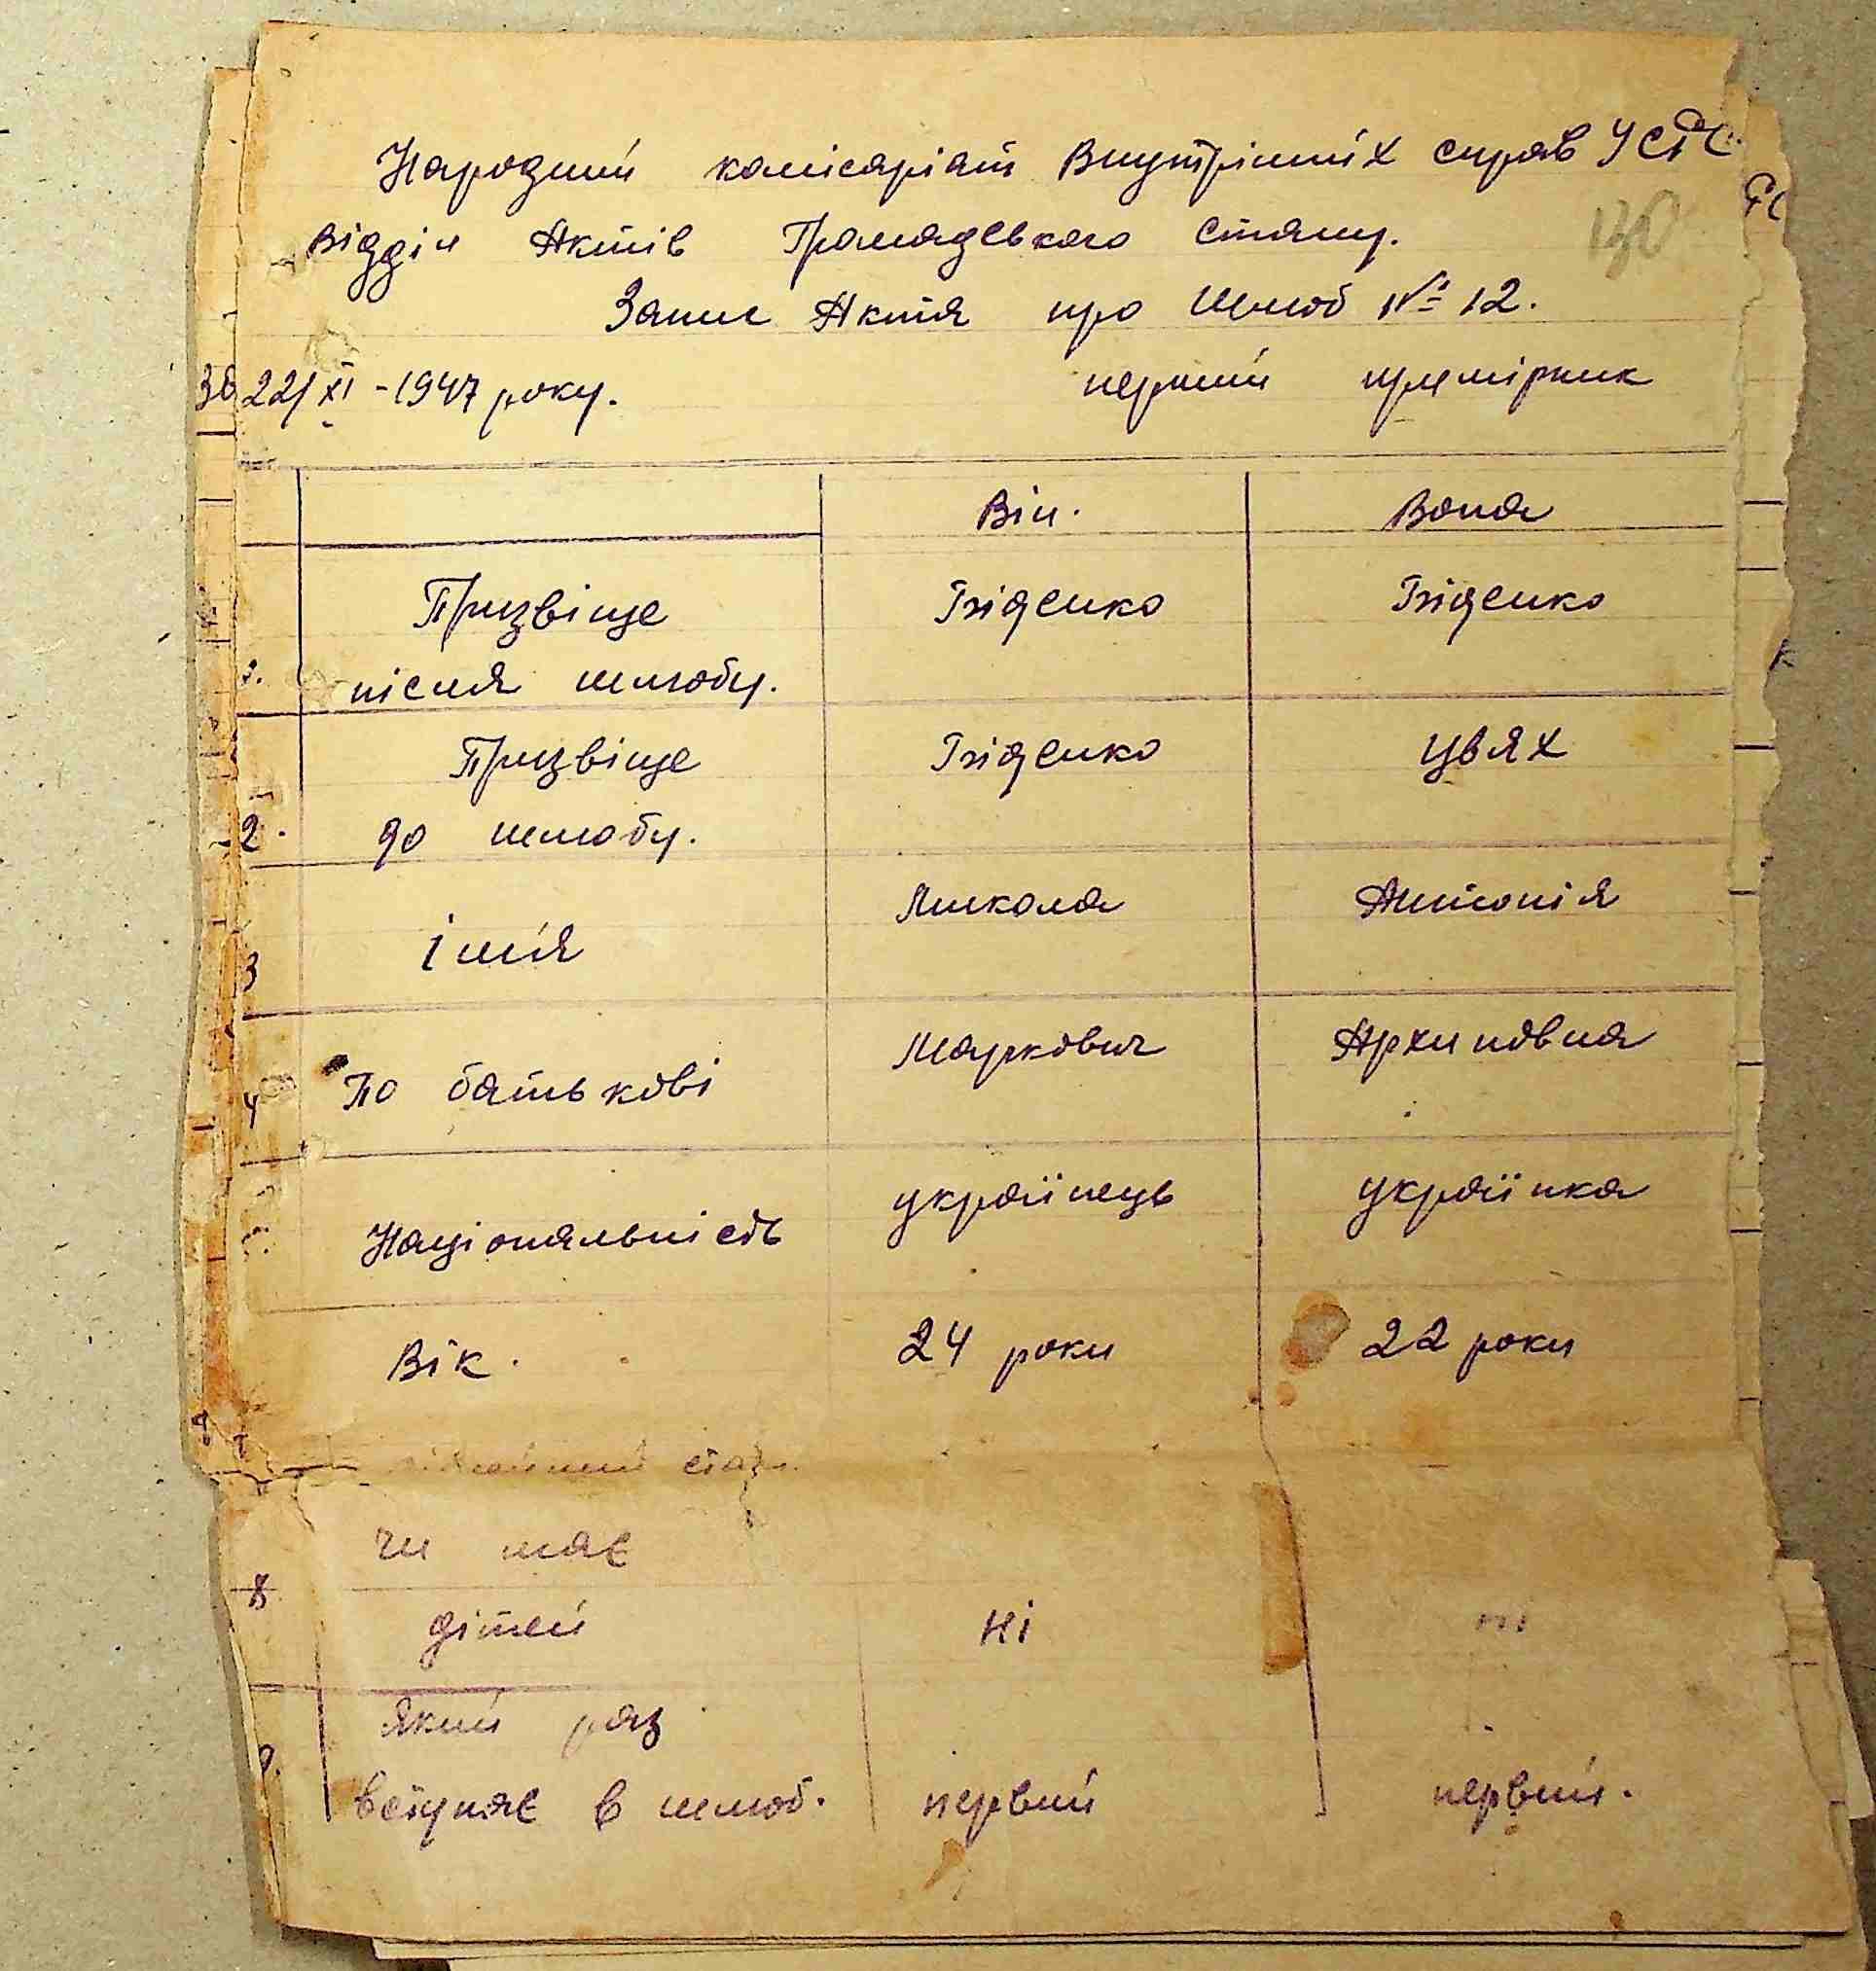 Народний комісаріат Внутрішніх справ УСРС.
Відділ Актів Громадського стану.
130
Запис Акта про Шлюб № 12.
За 22/XI - 1947 року. перший примірник
Він. Вона
Призвіще Гніденко Гніденко
після шлюбу.
Призвіще Гніденко Цвях
2. до шлюбу.
Микола Антонія
3 імя
Маркович Архиповна
4 По батькові
українець українка
Національність
Вік. 24 роки 22 роки
стан.
чи має
8 дітей ні ні
який раз
9. вступає в шлюб. первий первий.